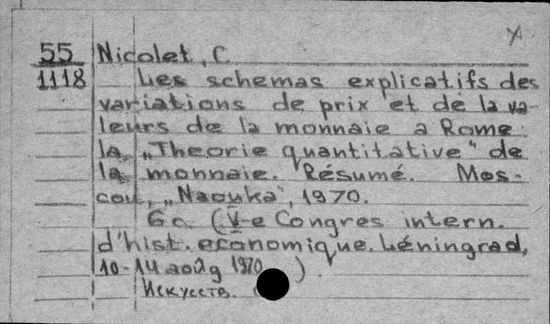 55 Nicolet, C
1118 Les schemas explicatifs des
variations de prix et de la va-
leurs de la monnaie a Rome:
la „Theorie quantitative" de
la monnaie. Résumé. Mos-
cou, „Naouka", 1970.
6 c. (V-e Congres intern.
d'hist. economique. Léningrad,
10-14 août 1970 )
Искусств.